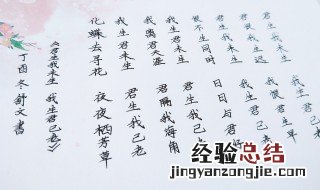 君生我未生 我生君已老
君恨我生迟 我恨君生早
恨不生同时 日日与君好
我生君未生 君生我已
我离君天涯 君隔我海角
我生君未生 君生我已老
化蝶去寻花 夜夜栖芳草
《君生我未生 我生君已老》
丁酉冬舒文書
经验总结